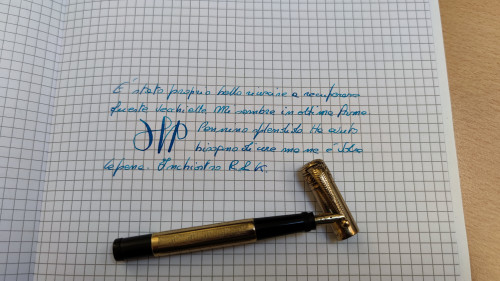 È stato proprio bello riuscire a recuperare
questa vecchietta. Mi sembra in ottima forma
Pennino splendido. Ha avuto
bisogno di cure ma ne è valsa
la pena. Inchiostro R & K.